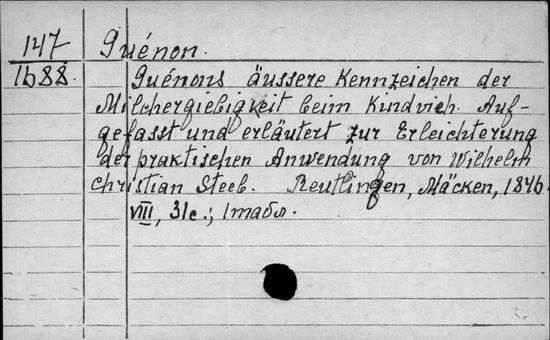 147
1688
Guénon.
Guénons äussere Kennzeichen der
Milchergiebigkeit beim Rindvieh. Auf-
gefasst und erläutert zur Erleichterung
der praktischen Anwendung von Wilhelm
Christian Steeb. Reutlingen, Mäcken, 1846.
VIII, 31с.; 1табл.